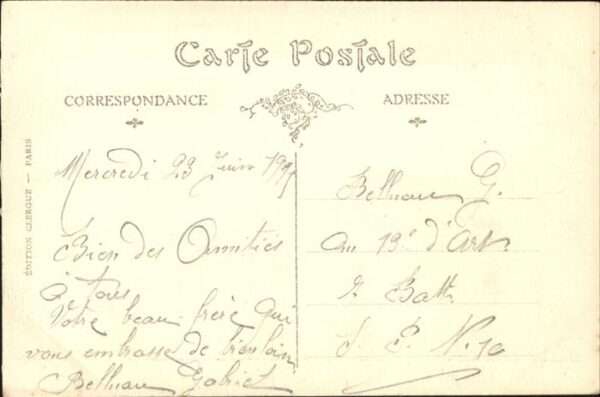 Carte Postale
CORRESPONDANCE
ADRESSE
ÉDITION CLERGUE — PARIS
Mercredi 23 Juin
Bien des Amitiés
à tous
Votre beau frère qui
vous embrasse de bien loin
Belluau Gabriel
Belluau G.
au 19e d'Art.
Batt.
S. P. No 10